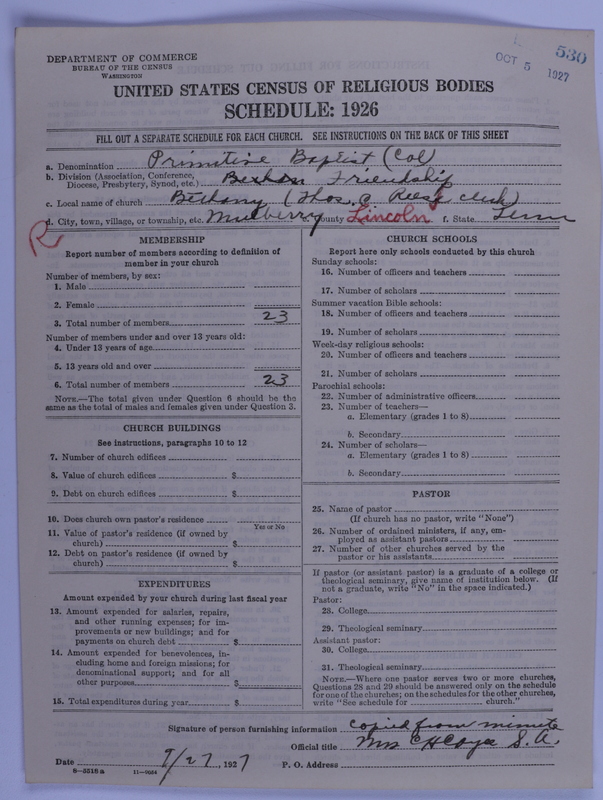 530
OCT 5 1927
DEPARTMENT OF COMMERCE
BUREAU OF THE CENSUS
WASHINGTON
UNITED STATES CENSUS OF RELIGIOUS BODIES
SCHEDULE: 1926
FILL OUT A SEPARATE SCHEDULE FOR EACH CHURCH. SEE INSTRUCTIONS ON THE BACK OF THIS SHEET
a. Denomination Primitive Baptist (Col)
b. Division (Association, Conference, Diocese, Presbytery, Synod, etc.) Friendship
c. Local name of church Bethany (Thos. C Reese clerk)
d. City, town, village, or township, etc. Mulberry County Lincoln f. State Tenn
R
MEMBERSHIP
Report number of members according to definition of
member in your church
Number of members, by sex:
1. Male
2. Female
3. Total number of members 23
Number of members under and over 13 years old:
4. Under 13 years of age
5. 13 years old and over
6. Total number of members 23
NOTE.—The total given under Question 6 should be the
same as the total of males and females given under Question 3.
CHURCH BUILDINGS
See instructions, paragraphs 10 to 12
7. Number of church edifices
8. Value of church edifices $
9. Debt on church edifices $
10. Does church own pastor's residence
Yes or No
11. Value of pastor's residence (if owned by
church) $
12. Debt on pastor's residence (if owned by
church) $
EXPENDITURES
Amount expended by your church during last fiscal year
13. Amount expended for salaries, repairs,
and other running expenses; for im-
provements or new buildings; and for
payments on church debt $
14. Amount expended for benevolences, in-
cluding home and foreign missions; for
denominational support; and for all
other purposes $
15. Total expenditures during year $
CHURCH SCHOOLS
Report here only schools conducted by this church
Sunday schools:
16. Number of officers and teachers
17. Number of scholars
Summer vacation Bible schools:
18. Number of officers and teachers
19. Number of scholars
Week-day religious schools:
20. Number of officers and teachers
21. Number of scholars
Parochial schools:
22. Number of administrative officers
23. Number of teachers—
a. Elementary (grades 1 to 8)
b. Secondary
24. Number of scholars—
a. Elementary (grades 1 to 8)
b. Secondary
PASTOR
25. Name of pastor
(If church has no pastor, write "None")
26. Number of ordained ministers, if any, em-
ployed as assistant pastors
27. Number of other churches served by the
pastor or his assistants
If pastor (or assistant pastor) is a graduate of a college or
theological seminary, give name of institution below. (If
not a graduate, write "No" in the space indicated.)
Pastor:
28. College
29. Theological seminary
Assistant pastor:
30. College
31. Theological seminary
NOTE.—Where one pastor serves two or more churches,
Questions 28 and 29 should be answered only on the schedule
for one of the churches; on the schedules for the other churches,
write "See schedule for church."
Signature of person furnishing information copied from minute
Official title Mrs S. A.
Date 9/27, 1927 P. O. Address
8-5516a 11-9054